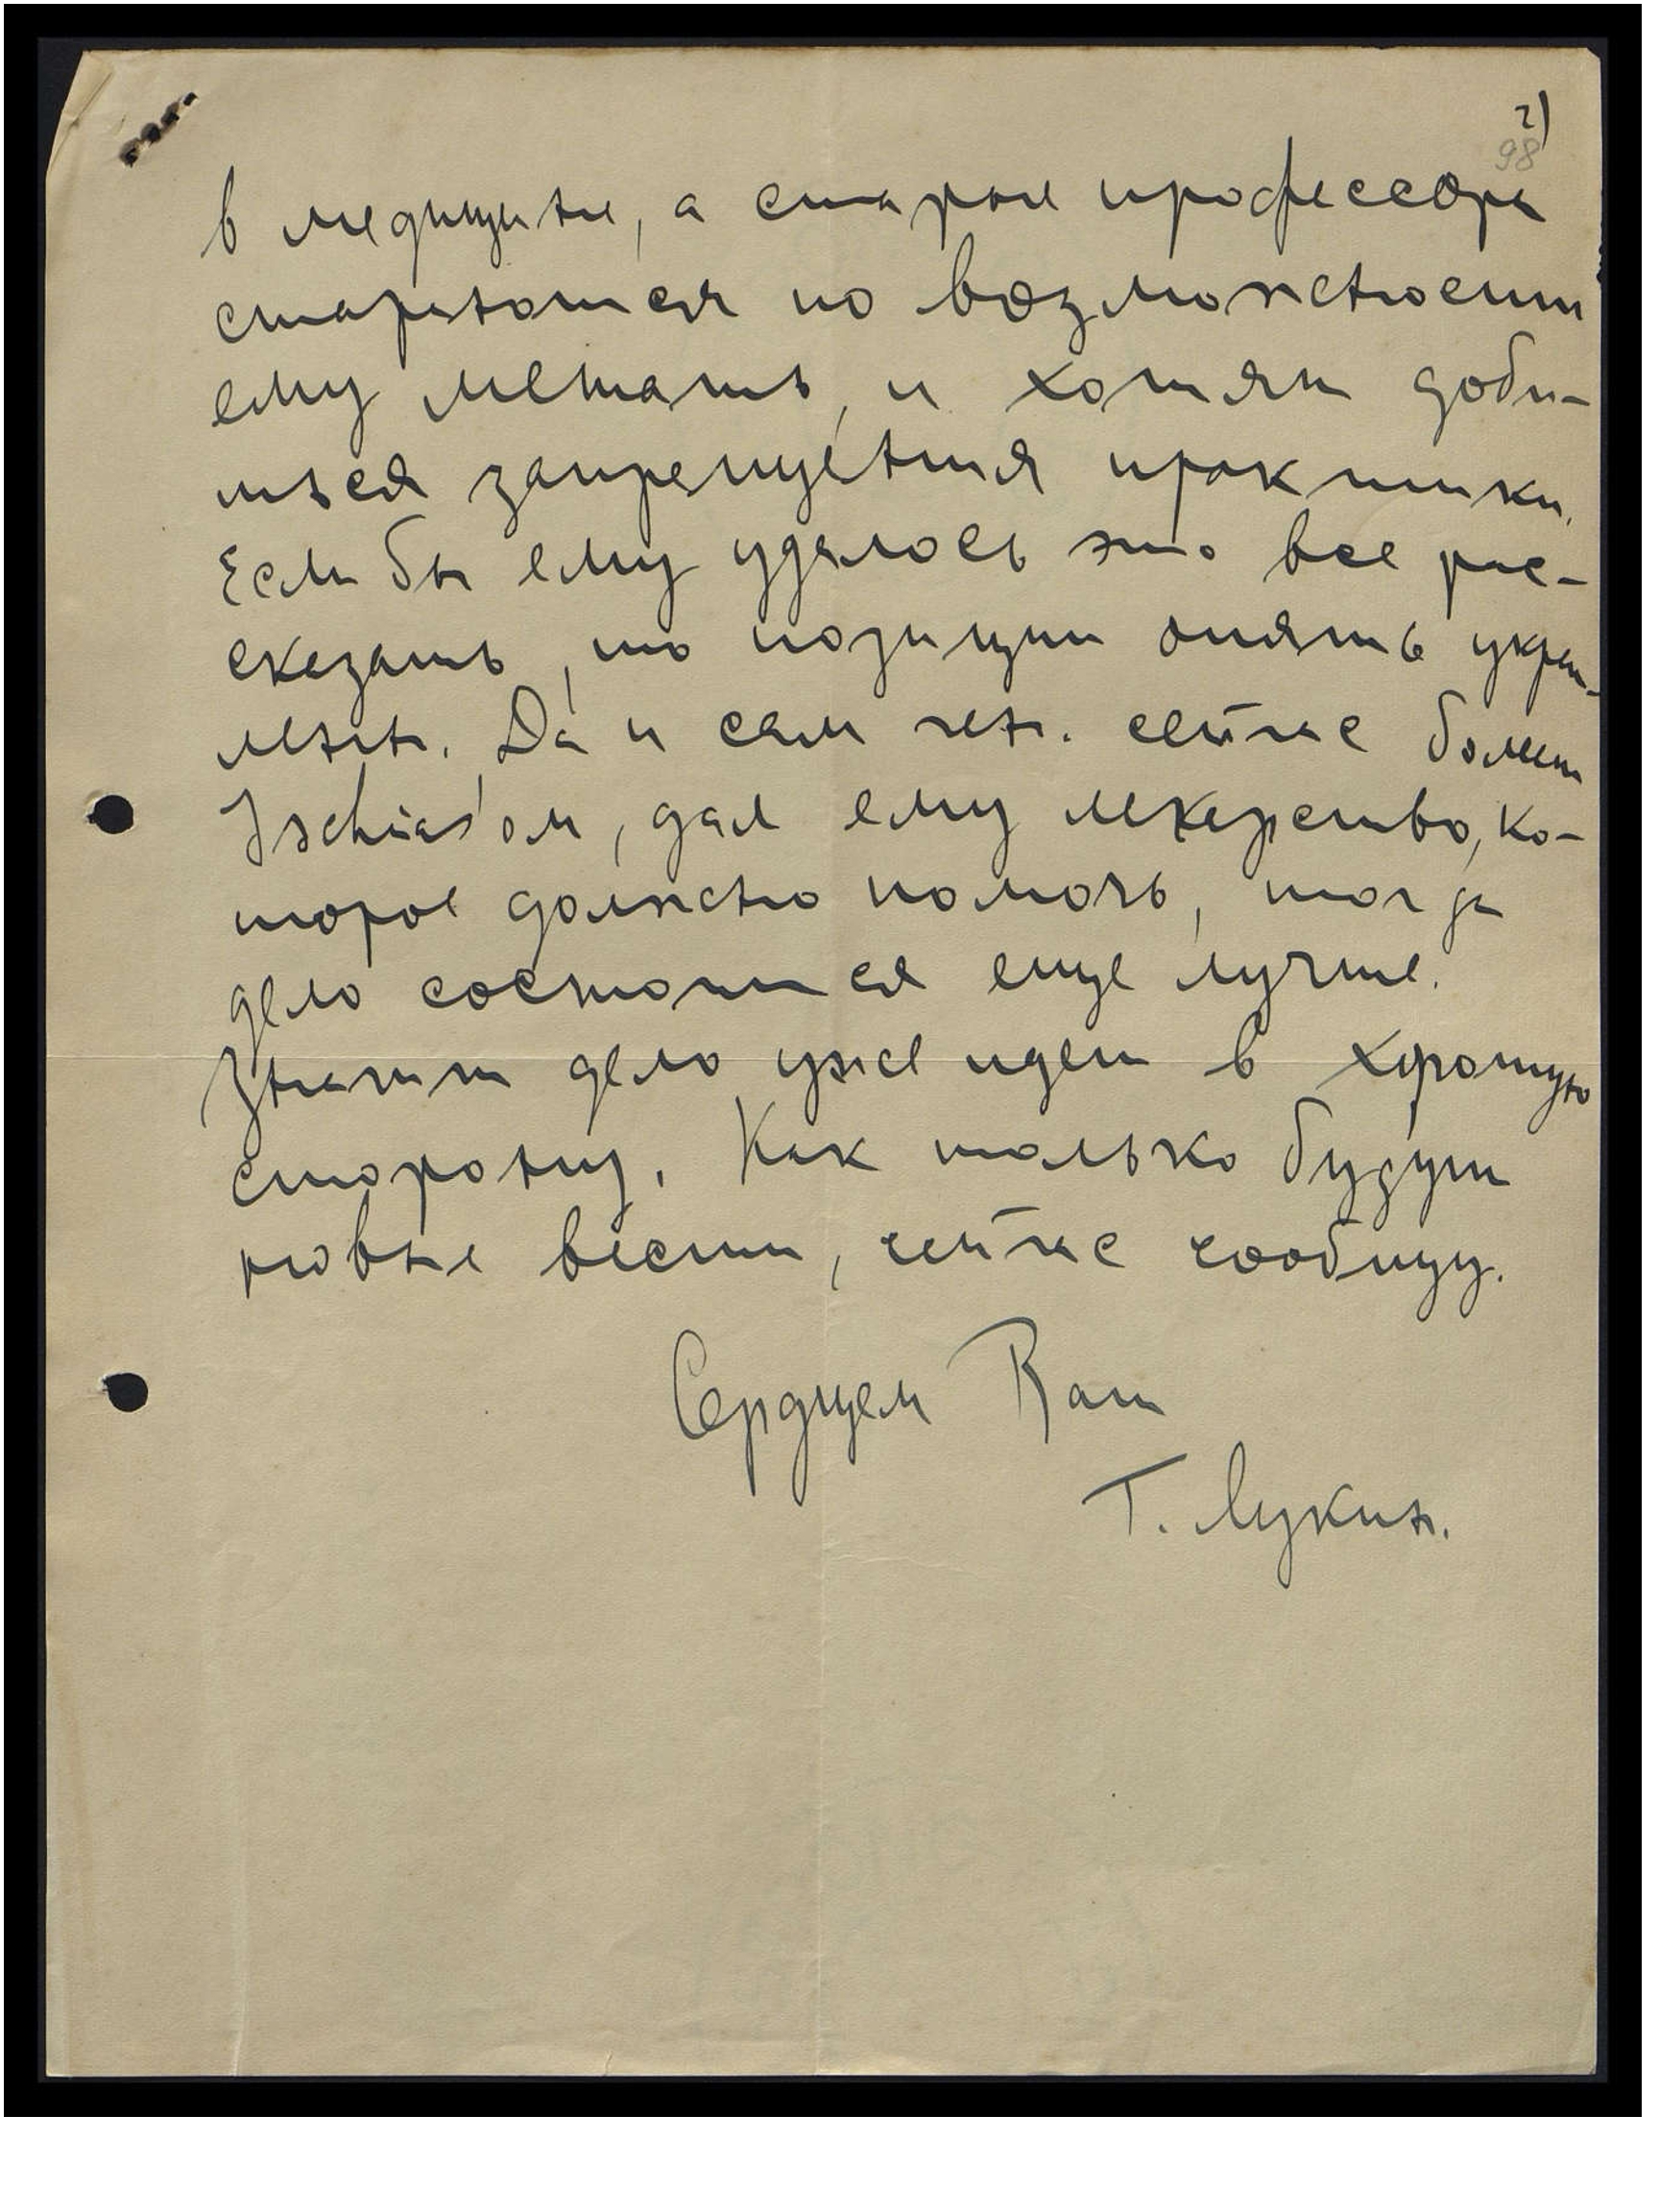 2)
98
в медицине, а старые профессора
стараются по возможности
ему мешать, и хотят доби-
ться запрещения практики.
Если бы ему удалось это все рас-
сказать, то позиции опять укреп-
лены. Да и сам ген. сейчас болеет
Ischias'ом, дал ему лекарство, ко-
торое должно помочь, тогда
дело состоится еще лучше.
Значит дело уже идет в хорошую
сторону. Как только будут
новые вести, сейчас сообщу.
Сердцем Ваш
Г. Лукин.